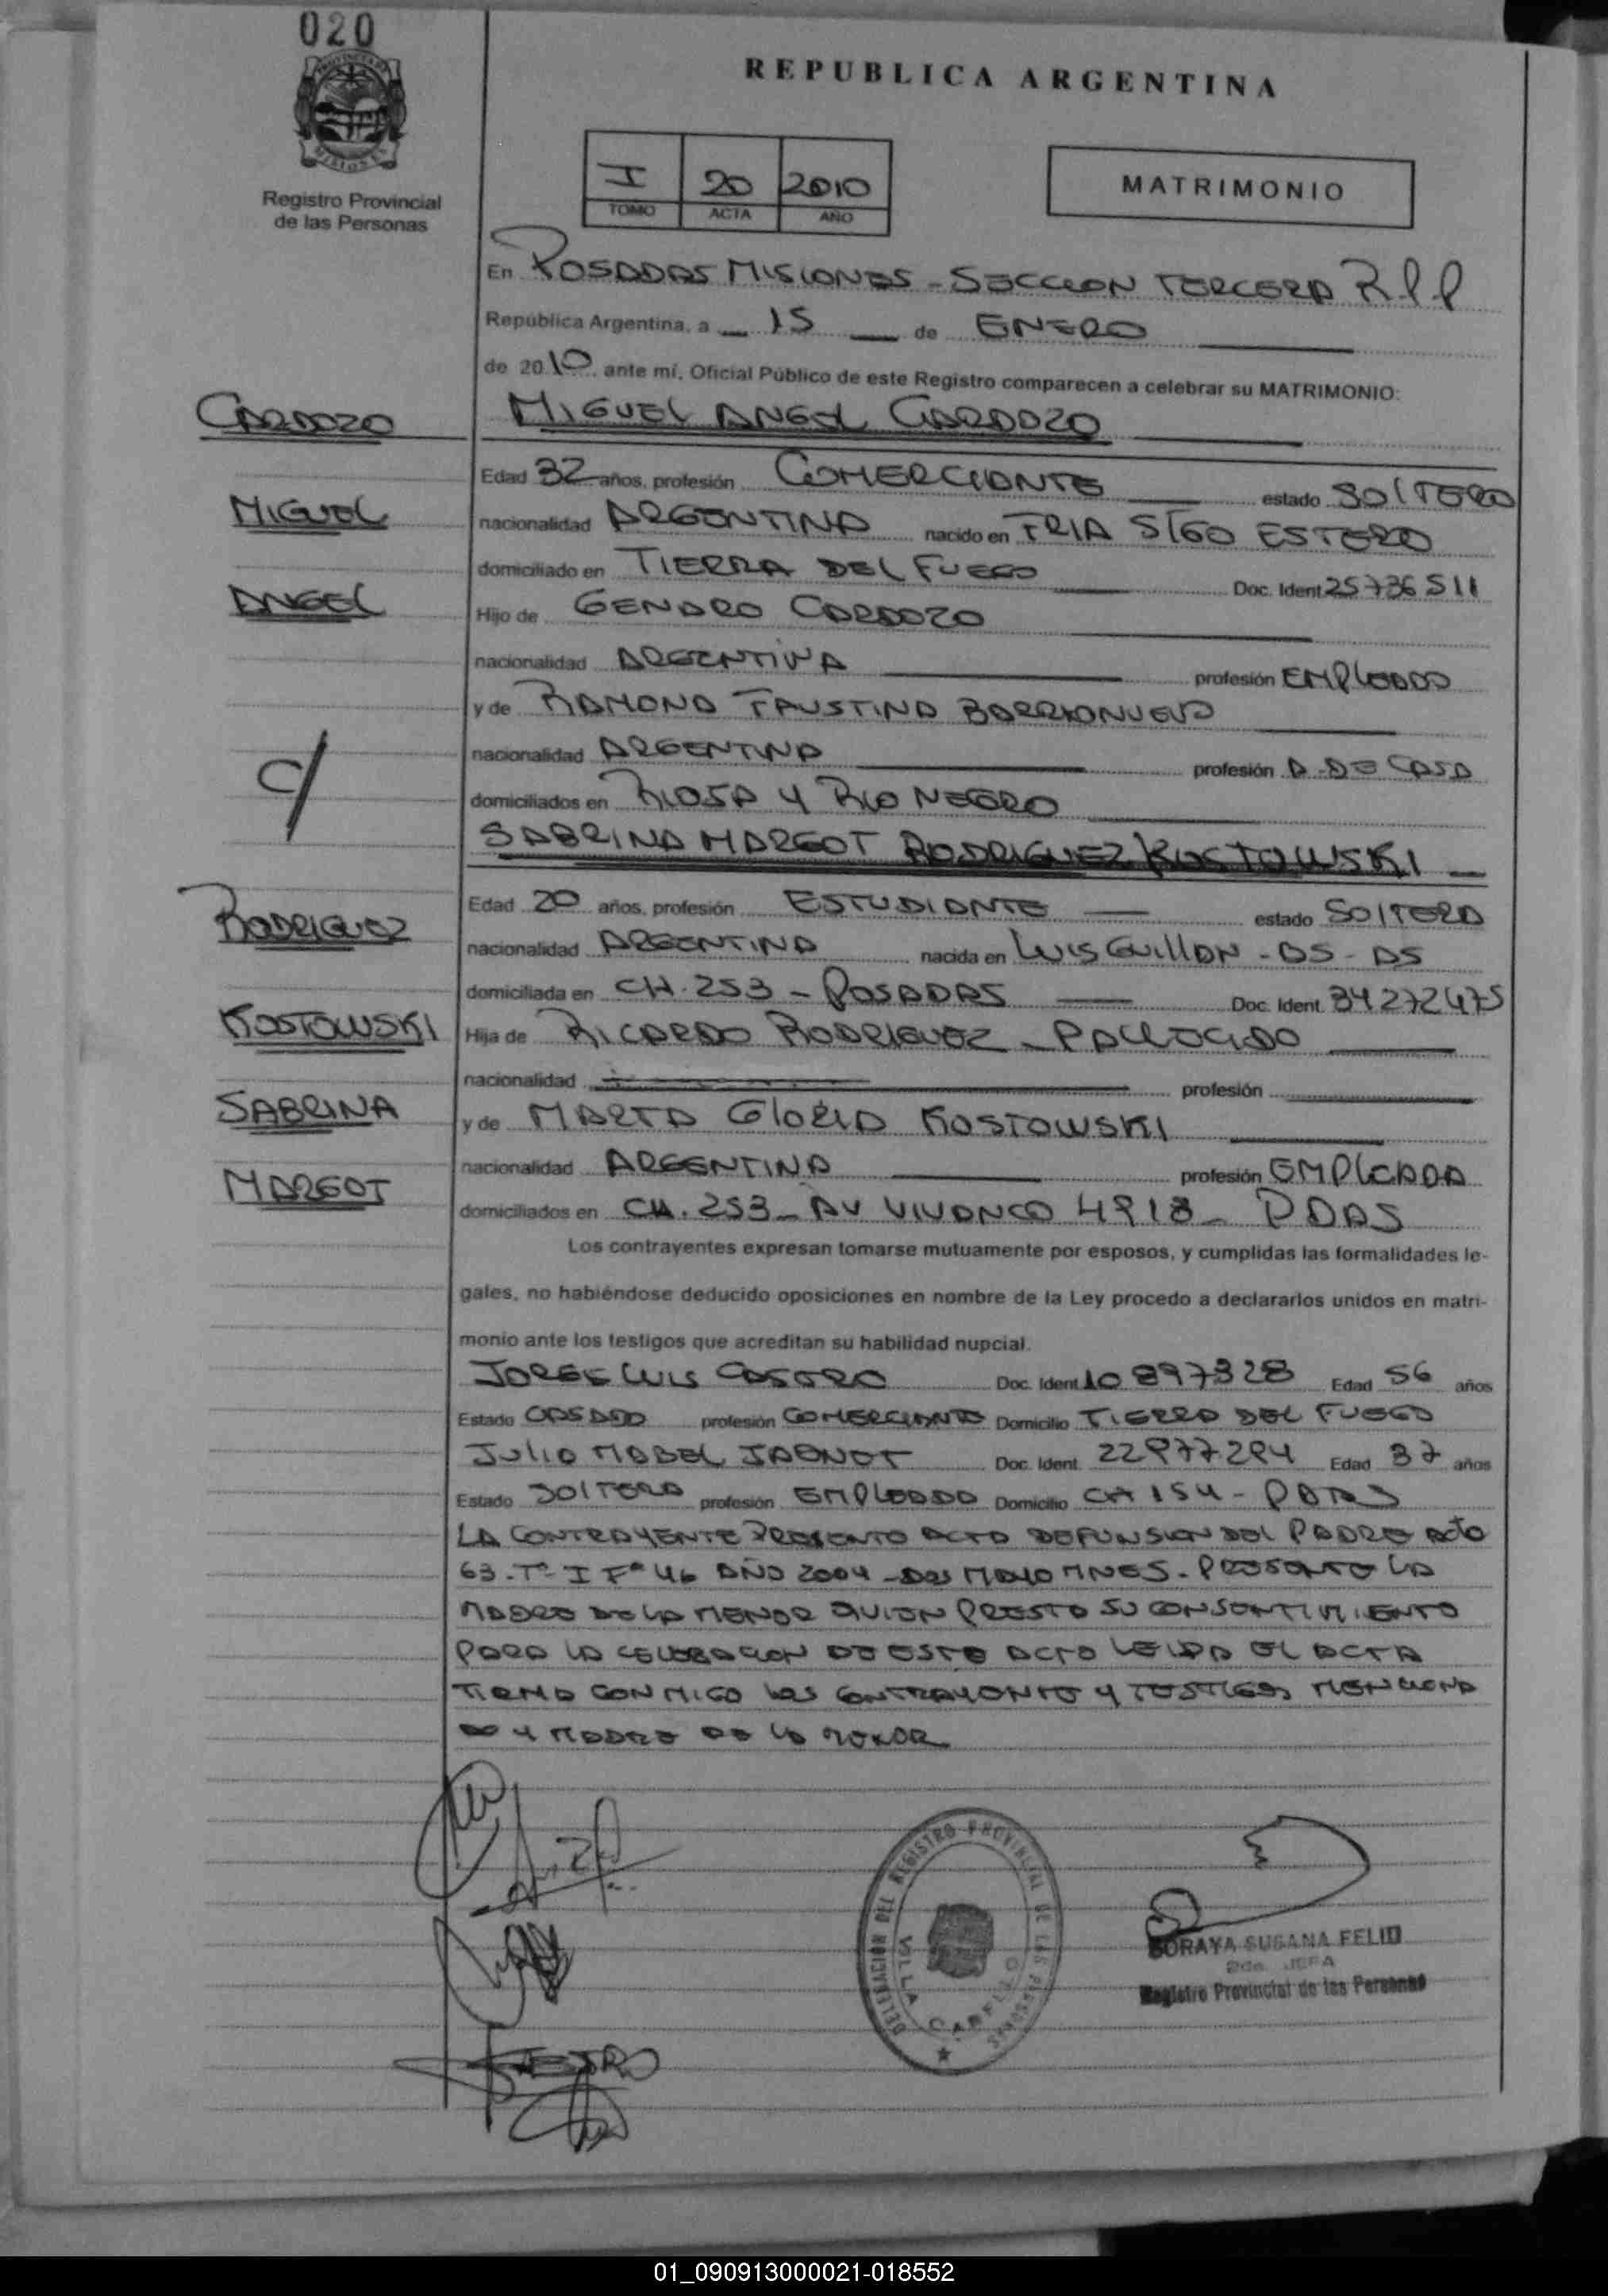 020
PROVINCIA DE
MISIONES
Registro Provincial
de las Personas
REPUBLICA ARGENTINA
I 20 2010
TOMO ACTA AÑO
MATRIMONIO
En POSADAS MISIONES - SECCION TERCERA R.P.P
República Argentina, a 15 de ENERO
de 2010 ante mí, Oficial Público de este Registro comparecen a celebrar su MATRIMONIO:
CARDOZO MIGUEL ANGEL CARDOZO
Edad 32 años, profesión COMERCIANTE estado SOLTERO
MIGUEL nacionalidad ARGENTINA nacido en FRIA STGO ESTERO
domiciliado en TIERRA DEL FUEGO Doc. Ident 25736511
ANGEL Hijo de GENARO CARDOZO
nacionalidad ARGENTINA profesión EMPLEADO
y de RAMONA FAUSTINA BARRIONUEVO
nacionalidad ARGENTINA profesión A DE CASA
C/ domiciliados en RIOJA Y RIO NEGRO
SABRINA MARGOT RODRIGUEZ KOSTOWSKI
Edad 20 años, profesión ESTUDIANTE estado SOLTERA
RODRIGUEZ nacionalidad ARGENTINA nacida en LUIS GUILLON - BS - AS
domiciliada en CH. 253 - POSADAS Doc. Ident. 34272475
KOSTOWSKI Hija de RICARDO RODRIGUEZ - FALLECIDO
nacionalidad profesión
SABRINA y de MARTA GLORIA KOSTOWSKI
nacionalidad ARGENTINA profesión EMPLEADA
MARGOT domiciliados en CH. 253 - AV VIVANCO 4918 - PDAS
Los contrayentes expresan tomarse mutuamente por esposos, y cumplidas las formalidades le-
gales, no habiéndose deducido oposiciones en nombre de la Ley procedo a declararlos unidos en matri-
monio ante los testigos que acreditan su habilidad nupcial.
JORGE LUIS CASTRO Doc. Ident 10897328 Edad 56 años
Estado CASADO profesión COMERCIANTE Domicilio TIERRA DEL FUEGO
JULIA MABEL Doc. Ident. 22977294 Edad 37 años
Estado SOLTERA profesión EMPLEADA Domicilio CH 154 - PDAS
LA CONTRAYENTE PRESENTO ACTA DEFUNSION DEL PADRE ACTA
63. Tº I Fº 46 AÑO 2004 - DOS MAYO MNES. PRESENTE LA
MADRE DE LA MENOR QUIEN PRESTA SU CONSENTIMIENTO
PARA LA CELEBRACION DE ESTE ACTO LEIDA EL ACTA
FIRMA CONMIGO LOS CONTRAYENTE Y TESTIGOS MENCIONA
DO Y MADRE DE LA MENOR
DELEGACION DEL REGISTRO PROVINCIAL DE LAS PERSONAS
VILLA CABELLO
SORAYA SUSANA FELIU
2da. JEFA
Registro Provincial de las Personas
01_090913000021-018552